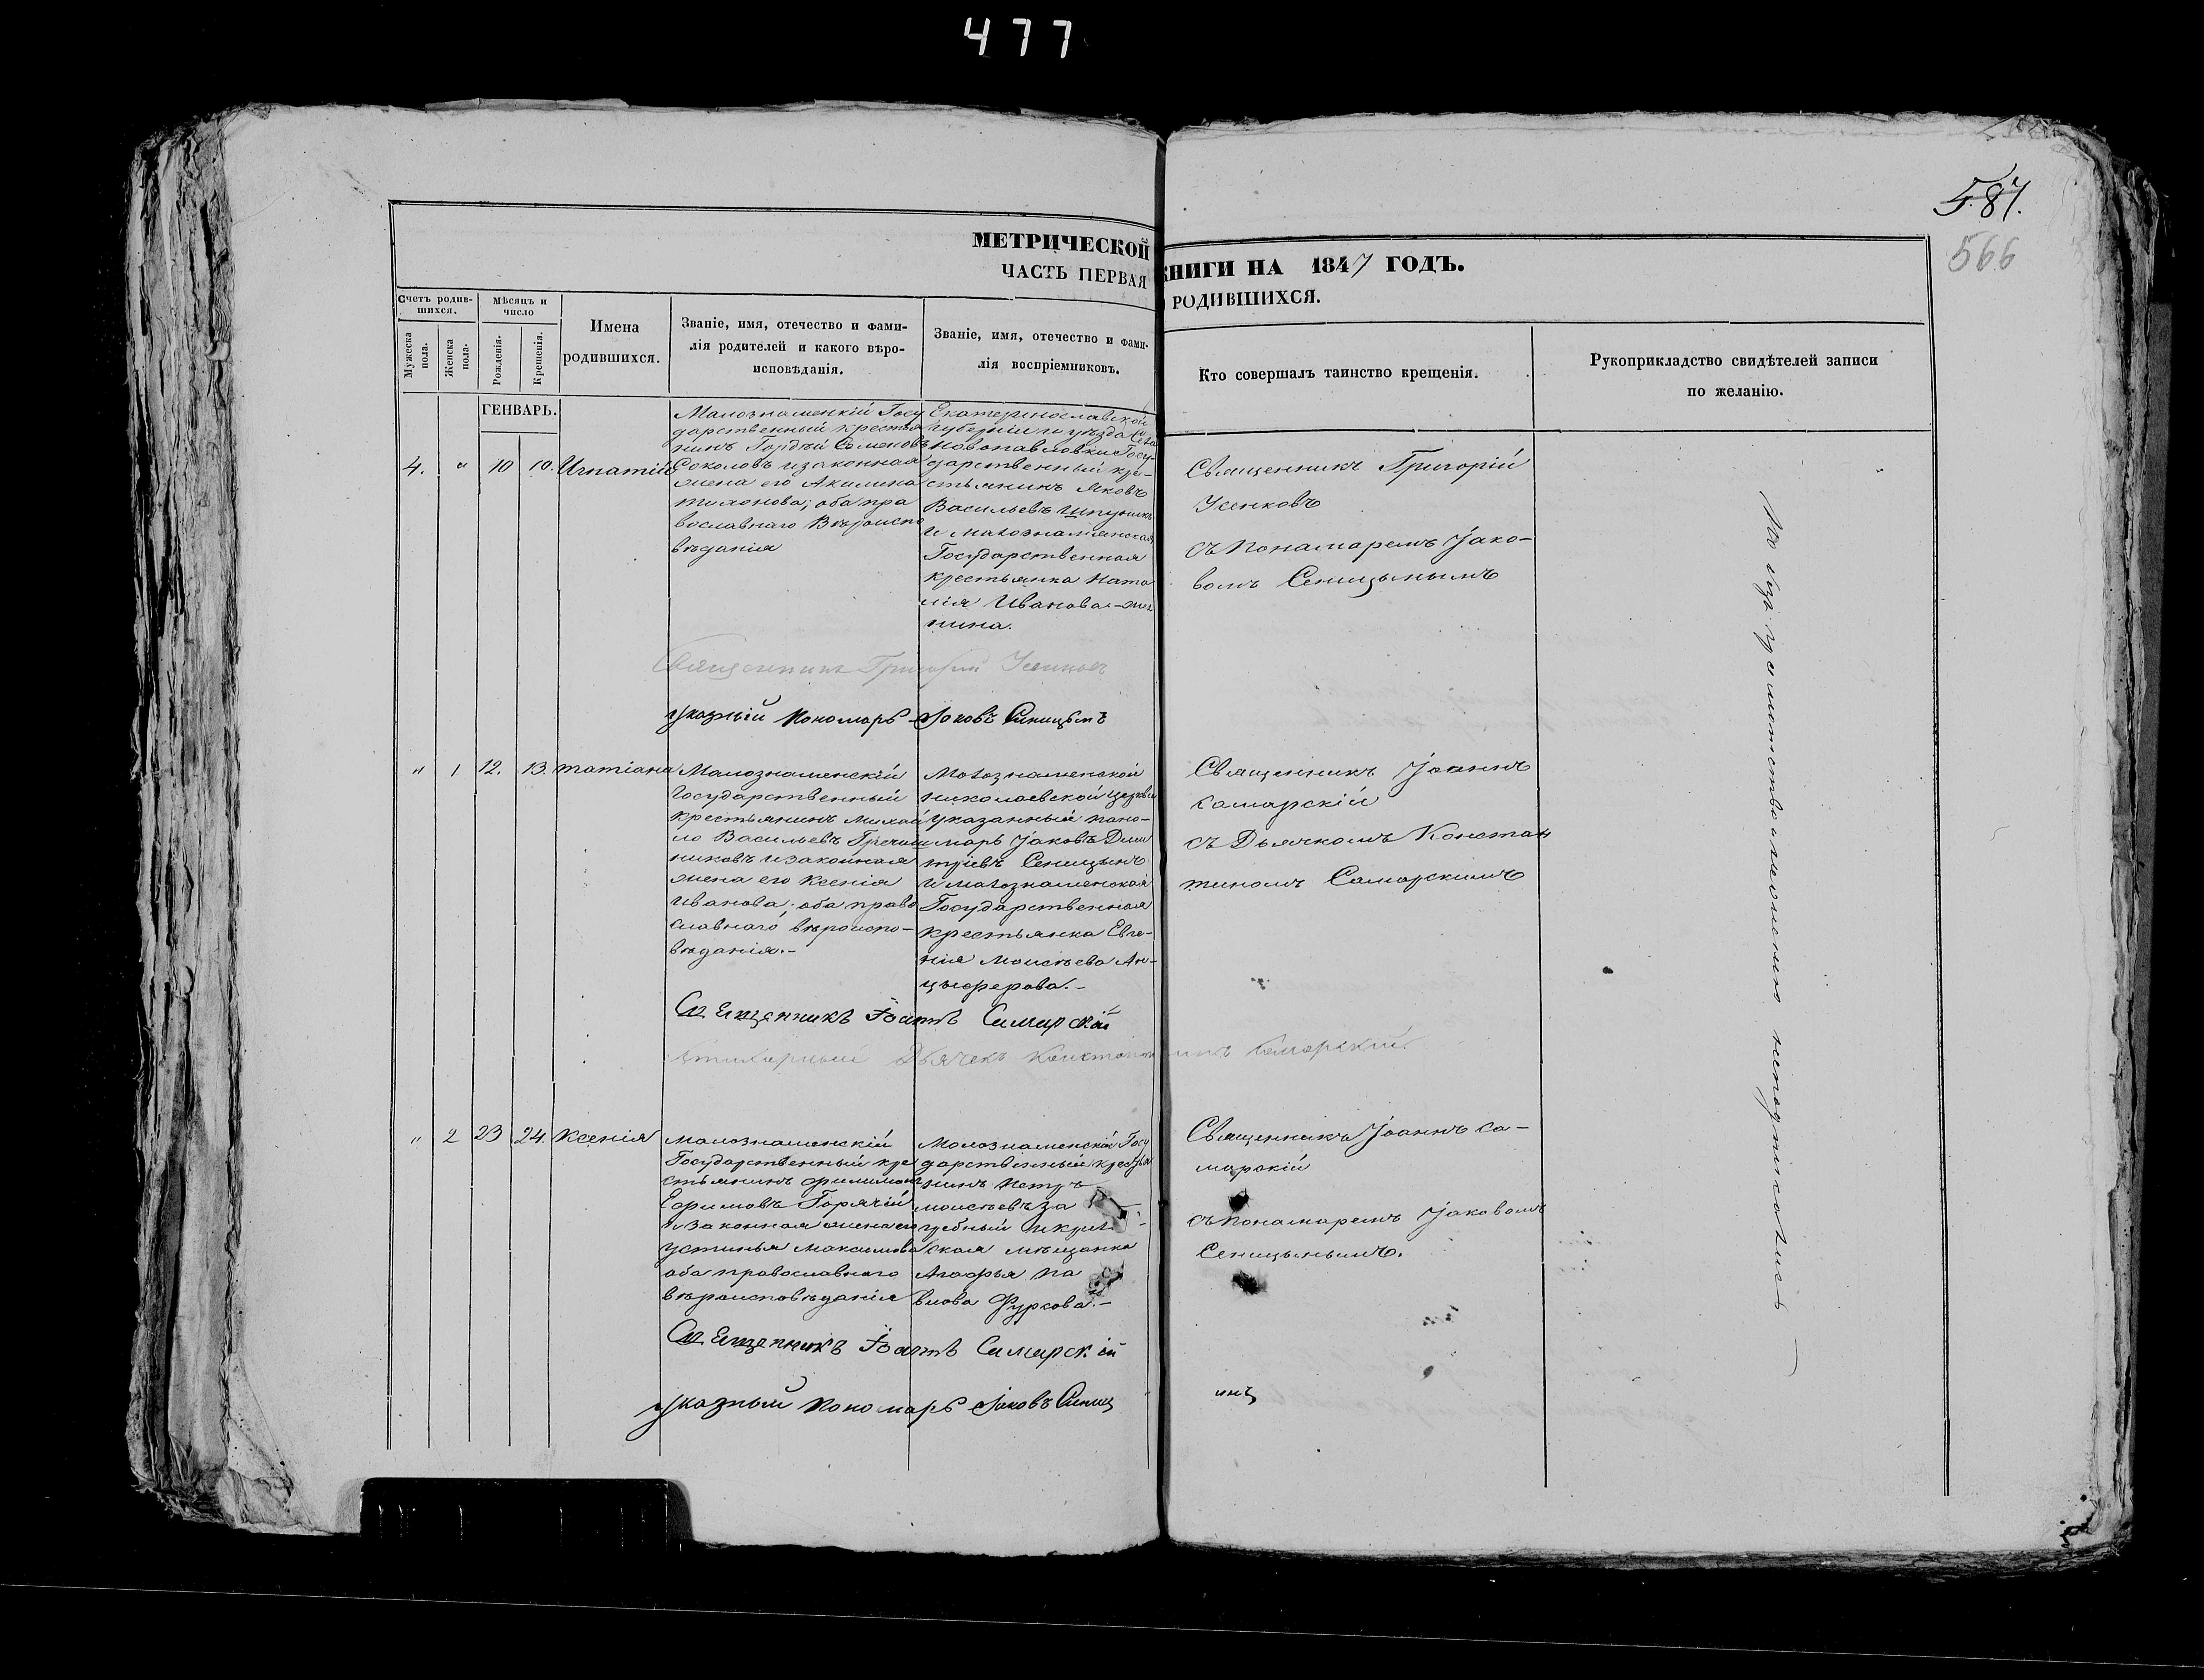 477
587.
566
МЕТРИЧЕСКОЙ КНИГИ НА 1847 ГОДЪ.
ЧАСТЬ ПЕРВАЯ РОДИВШИХСЯ.
Счетъ родив-
шихся.
Мужеска пола.
Женска пола.
Мѣсяцъ и
число
Рожденія.
Крещенія.
Имена
родившихся.
Званіе, имя, отечество и фами-
лія родителей и какого вѣро-
исповѣданія.
Званіе, имя, отечество и фами-
лія воспріемниковъ.
Кто совершалъ таинство крещенія.
Рукоприкладство свидѣтелей записи
по желанію.
ГЕНВАРЬ.
4. " 10 10. Игнатій
Малознаменкій Госу
дарственный крестья
нинъ Гордѣй Семеновъ
Соколовъ изаконная
жена его Акилина
оба пра
вославнаго Вѣроиспо
вѣданія
Екатеринославской
губерніи и уѣзда Села
Новопавловки Госу-
дарственный кре-
стьянинъ Яковъ
Васильевъ
и малознаменская
Государственная
крестьянка Ната
лія Иванова
Священникъ Григорій
Усенковъ
съ Понамаремъ Іако-
вомъ Сеницынымъ
Священникъ Григорій Усенковъ
указный Пономарь Іаковъ Синицынъ
" 1 12. 13. татіана
Малознаменскій
Государственный
крестьянинъ Михай
ло Васильевъ Гречиш
никовъ изаконная
жена его Ксенія
Иванова; оба право
славнаго вѣроиспо-
вѣданія.-
Малознаменской
Николаевской Церкви
указанный пано-
марь Іаковъ Дими
тріевъ Сеницынъ
и малознаменская
Государственная
крестьянка Евге-
нія Моисѣева Ан-
цыферова.-
Священникъ Іоаннъ
Самарскій
съ Дьячкомъ Констан
тиномъ Самарскимъ
Священникъ Іоаннъ Самарскій
Стихарный Дьячекъ Константинъ Самарскій.
" 2 23 24. Ксенія
Малознаменскій
Государственный кре
стьянинъ филимонъ
Ефимовъ Горячій
изаконная жена его
устинья Максимова
оба православнаго
вѣроисповѣданія
Малознаменскій Госу
дарственный крестья
нинъ Петръ
моисѣевъ за
ская мѣщанка
Агафья Па
влова Фурсова.-
Священникъ Іоаннъ Са-
марскій
съ понамаремъ Іаковомъ
Сеницынымъ.
Священникъ Іоаннъ Самарскій
указный Пономарь Іаковъ Синиц
инъ